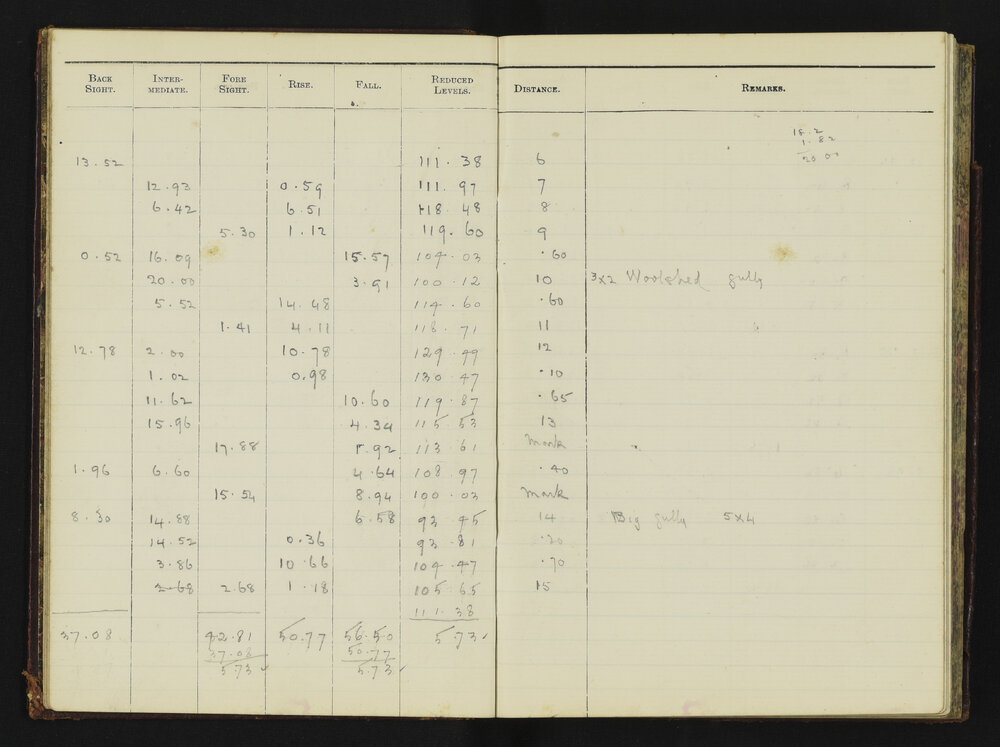 BACK SIGHT. INTER-MEDIATE. FORE SIGHT. RISE. FALL. REDUCED LEVELS. DISTANCE. REMARKS.
18.2
1.82
20.00
13.52 111.38 6
12.93 0.59 111.97 7
6.42 6.51 118.48 8
5.30 1.12 119.60 9
0.52 16.09 15.57 104.03 .60
20.00 3.91 100.12 10 3x2 Woolshed gully
5.52 14.48 114.60 .60
1.41 4.11 118.71 11
12.78 2.00 10.78 129.49 12
1.02 0.98 130.47 .10
11.62 10.60 119.87 .65
15.96 4.34 115.53 13
17.88 1.92 113.61 Mark
1.96 6.60 4.64 108.97 .40
15.54 8.94 100.03 Mark
8.30 14.88 6.58 93.45 14 Big gully 5x4
14.52 0.36 93.81 .20
3.86 10.66 104.47 .70
2.68 2.68 1.18 105.65 15
111.38
37.08 42.81 50.77 56.50 5.73
37.08 50.77
5.73 5.73